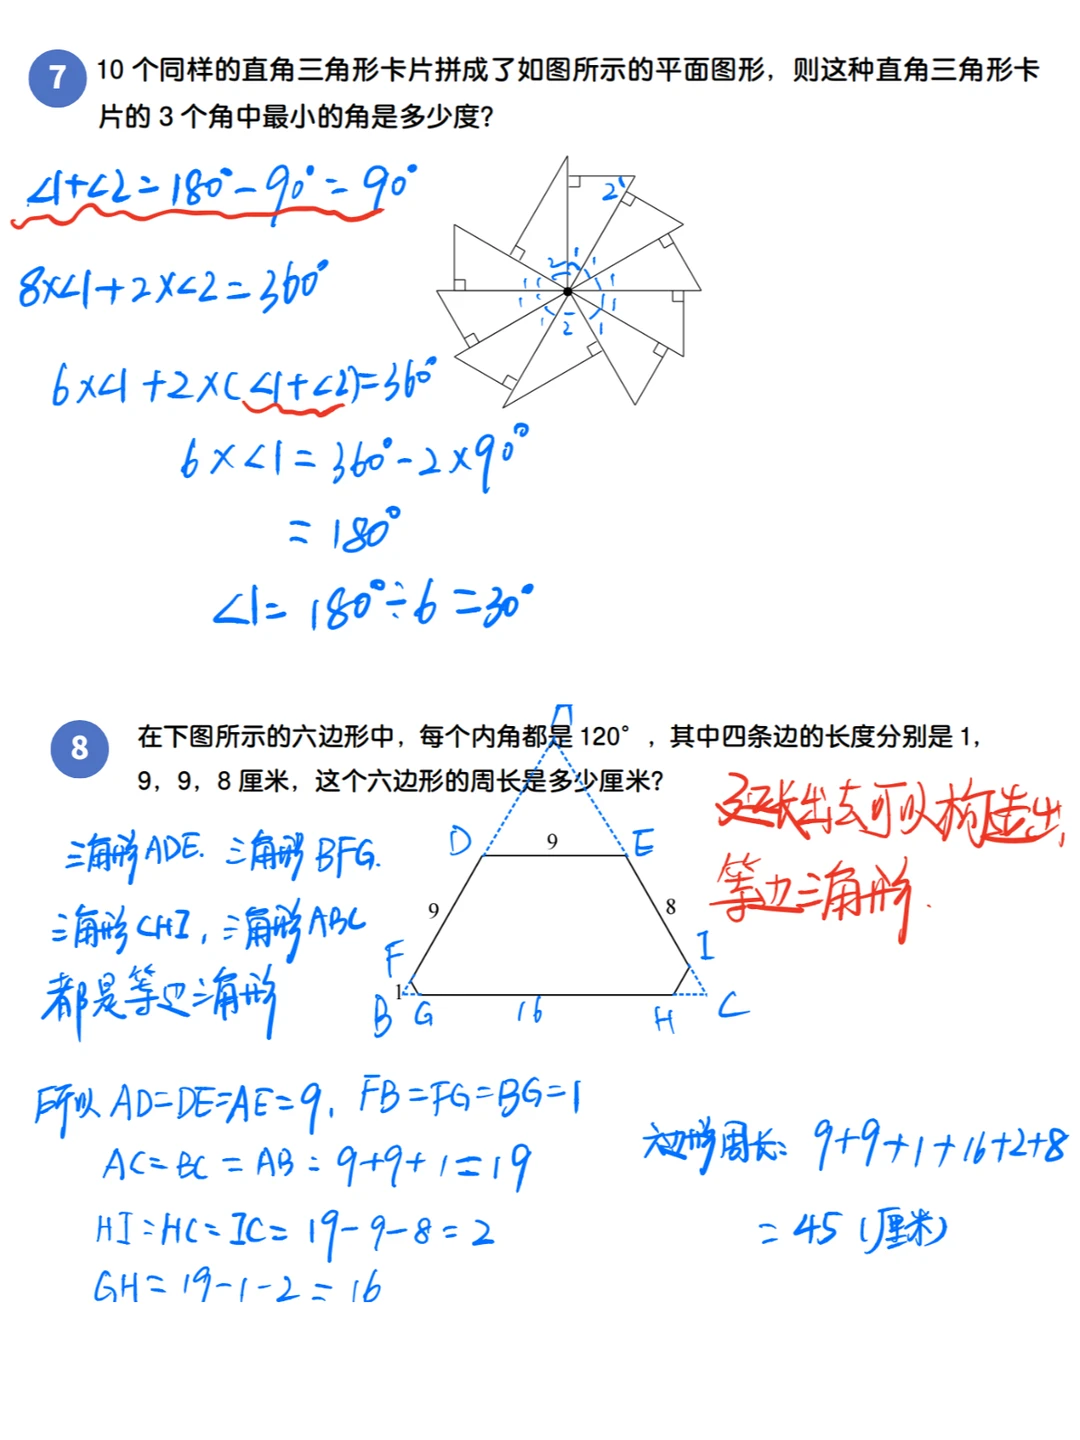 7 10 个同样的直角三角形卡片拼成了如图所示的平面图形，则这种直角三角形卡
片的 3 个角中最小的角是多少度？
∠1+∠2=180°-90°=90°
8×∠1+2×∠2=360°
6×∠1+2×(∠1+∠2)=360°
6×∠1=360°-2×90°
=180°
∠1=180°÷6=30°
2 1
2 1
1 1 1
1 1 1
1 2 1
8 在下图所示的六边形中，每个内角都是 120°，其中四条边的长度分别是 1，
9，9，8 厘米，这个六边形的周长是多少厘米？
延长出去可以构造出
等边三角形.
三角形ADE. 三角形BFG.
三角形CHI, 三角形ABC
都是等边三角形
A
D 9 E
9 8
F I
1
B G 16 H C
所以 AD=DE=AE=9, FB=FG=BG=1
AC=BC=AB=9+9+1=19
HI=HC=IC=19-9-8=2
GH=19-1-2=16
六边形周长: 9+9+1+16+2+8
=45(厘米)